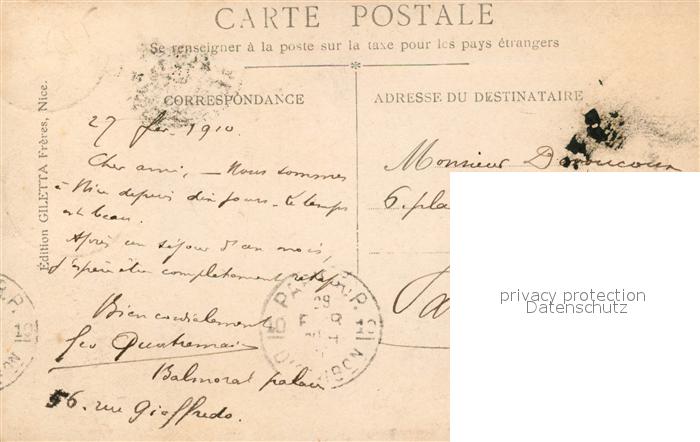 CARTE POSTALE
Se renseigner à la poste sur la taxe pour les pays étrangers
CORRESPONDANCE
ADRESSE DU DESTINATAIRE
Édition GILETTA Frères, Nice.
27 fev. 1910.
Cher ami, — Nous sommes
à Nice depuis dix jours. Le temps
est beau.
Après un séjour d'un mois,
j'espère être complètement retapé
Bien cordialement
Geo Quatremain
Balmoral palace
56. rue Gioffredo.
Monsieur
6. pla
Pa
PARIS
privacy protection
Datenschutz